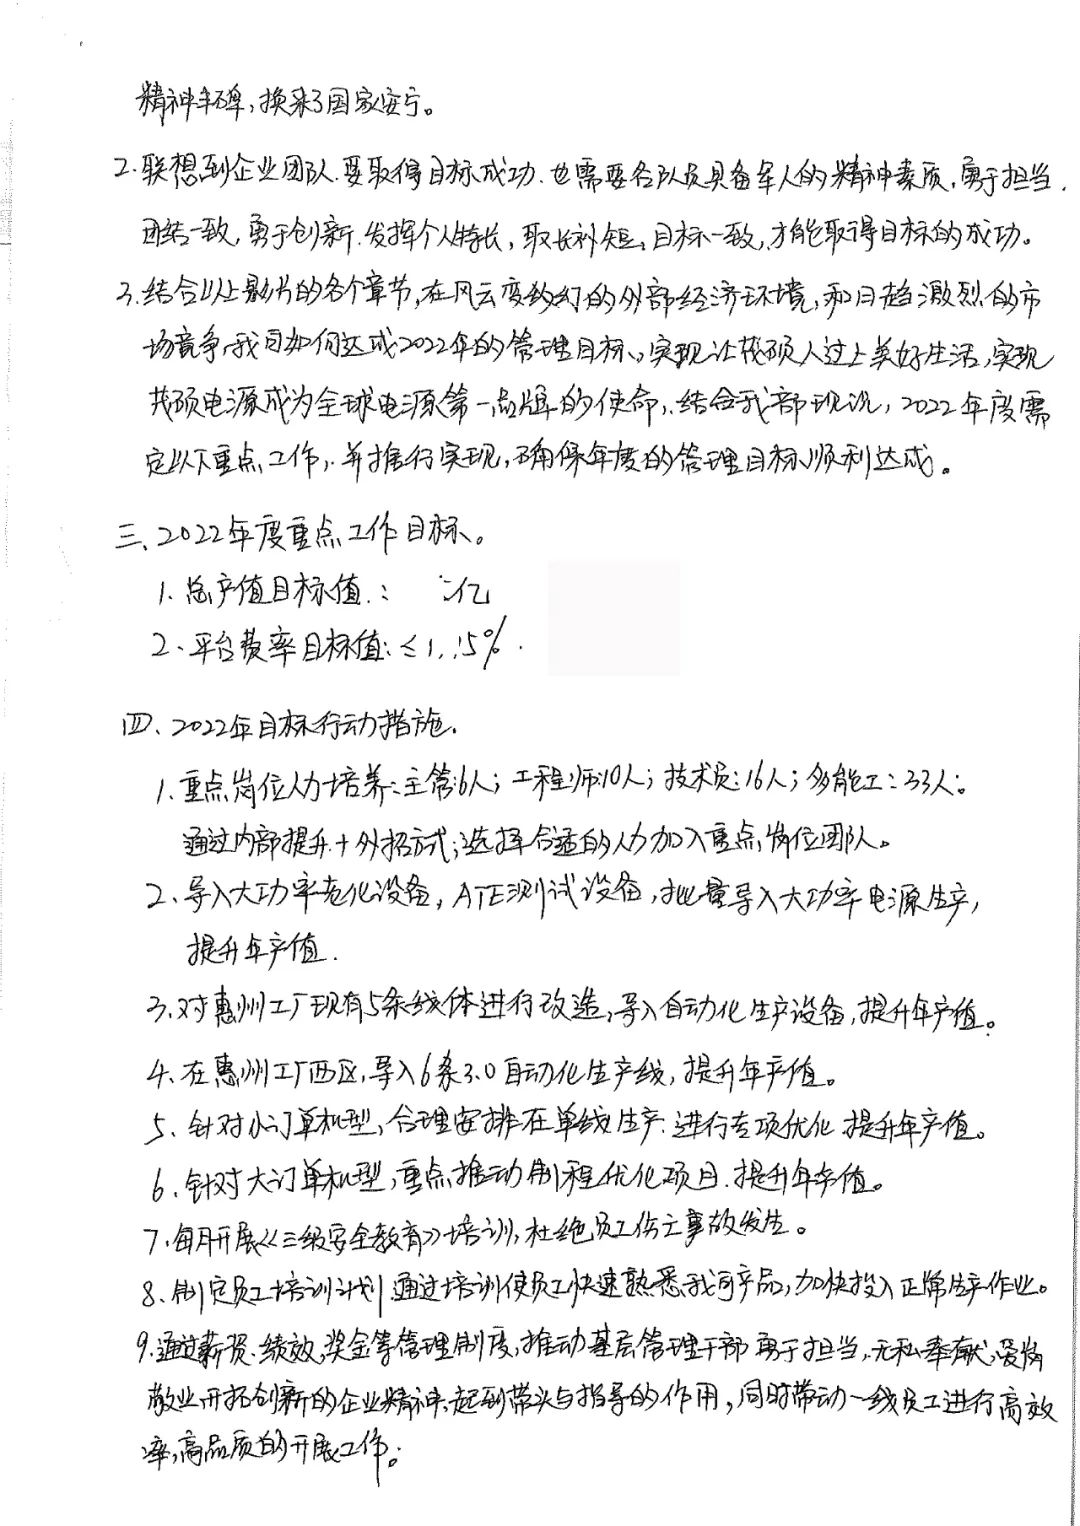 精神丰碑，换来了国家安宁。
2. 联想到企业团队.要取得目标成功.也需要各队员具备军人的精神素质，勇于担当.
团结一致，勇于创新.发挥个人特长，取长补短，目标一致，才能取得目标的成功。
3. 结合以上影片的各个章节，在风云变幻的外部经济环境，和日趋激烈的市
场竞争，我司如何达成2022年的管理目标，实现让茂硕人过上美好生活，实现
茂硕电源成为全球电源第一品牌的使命，结合我部现况，2022年度需
定以下重点工作，并推行实现，确保年度的管理目标顺利达成。
三、2022年度重点工作目标。
1. 总产值目标值： 亿
2. 平台费率目标值：≤1. 5%.
四、2022年目标行动措施.
1. 重点岗位人力培养：主管：6人；工程师：10人；技术员：16人；多能工：33人。
通过内部提升+外招方式；选择合适的人力加入重点岗位团队。
2、导入大功率老化设备，ATE测试设备，批量导入大功率电源生产，
提升年产值.
3. 对惠州工厂现有5条线体进行改造，导入自动化生产设备，提升年产值。
4. 在惠州工厂西区，导入6条3.0自动化生产线，提升年产值。
5. 针对小订单机型，合理安排在单线生产.进行专项优化 提升年产值。
6. 针对大订单机型，重点推动制程优化项目.提升年产值。
7. 每月开展《三级安全教育》培训，杜绝员工伤亡事故发生。
8. 制定员工培训计划 通过培训使员工快速熟悉我司产品，加快投入正常生产作业。
9. 通过薪资、绩效，奖金等管理制度，推动基层管理干部勇于担当，无私奉献，爱岗
敬业开拓创新的企业精神.起到带头与指导的作用，同时带动一线员工进行高效
率，高品质的开展工作。